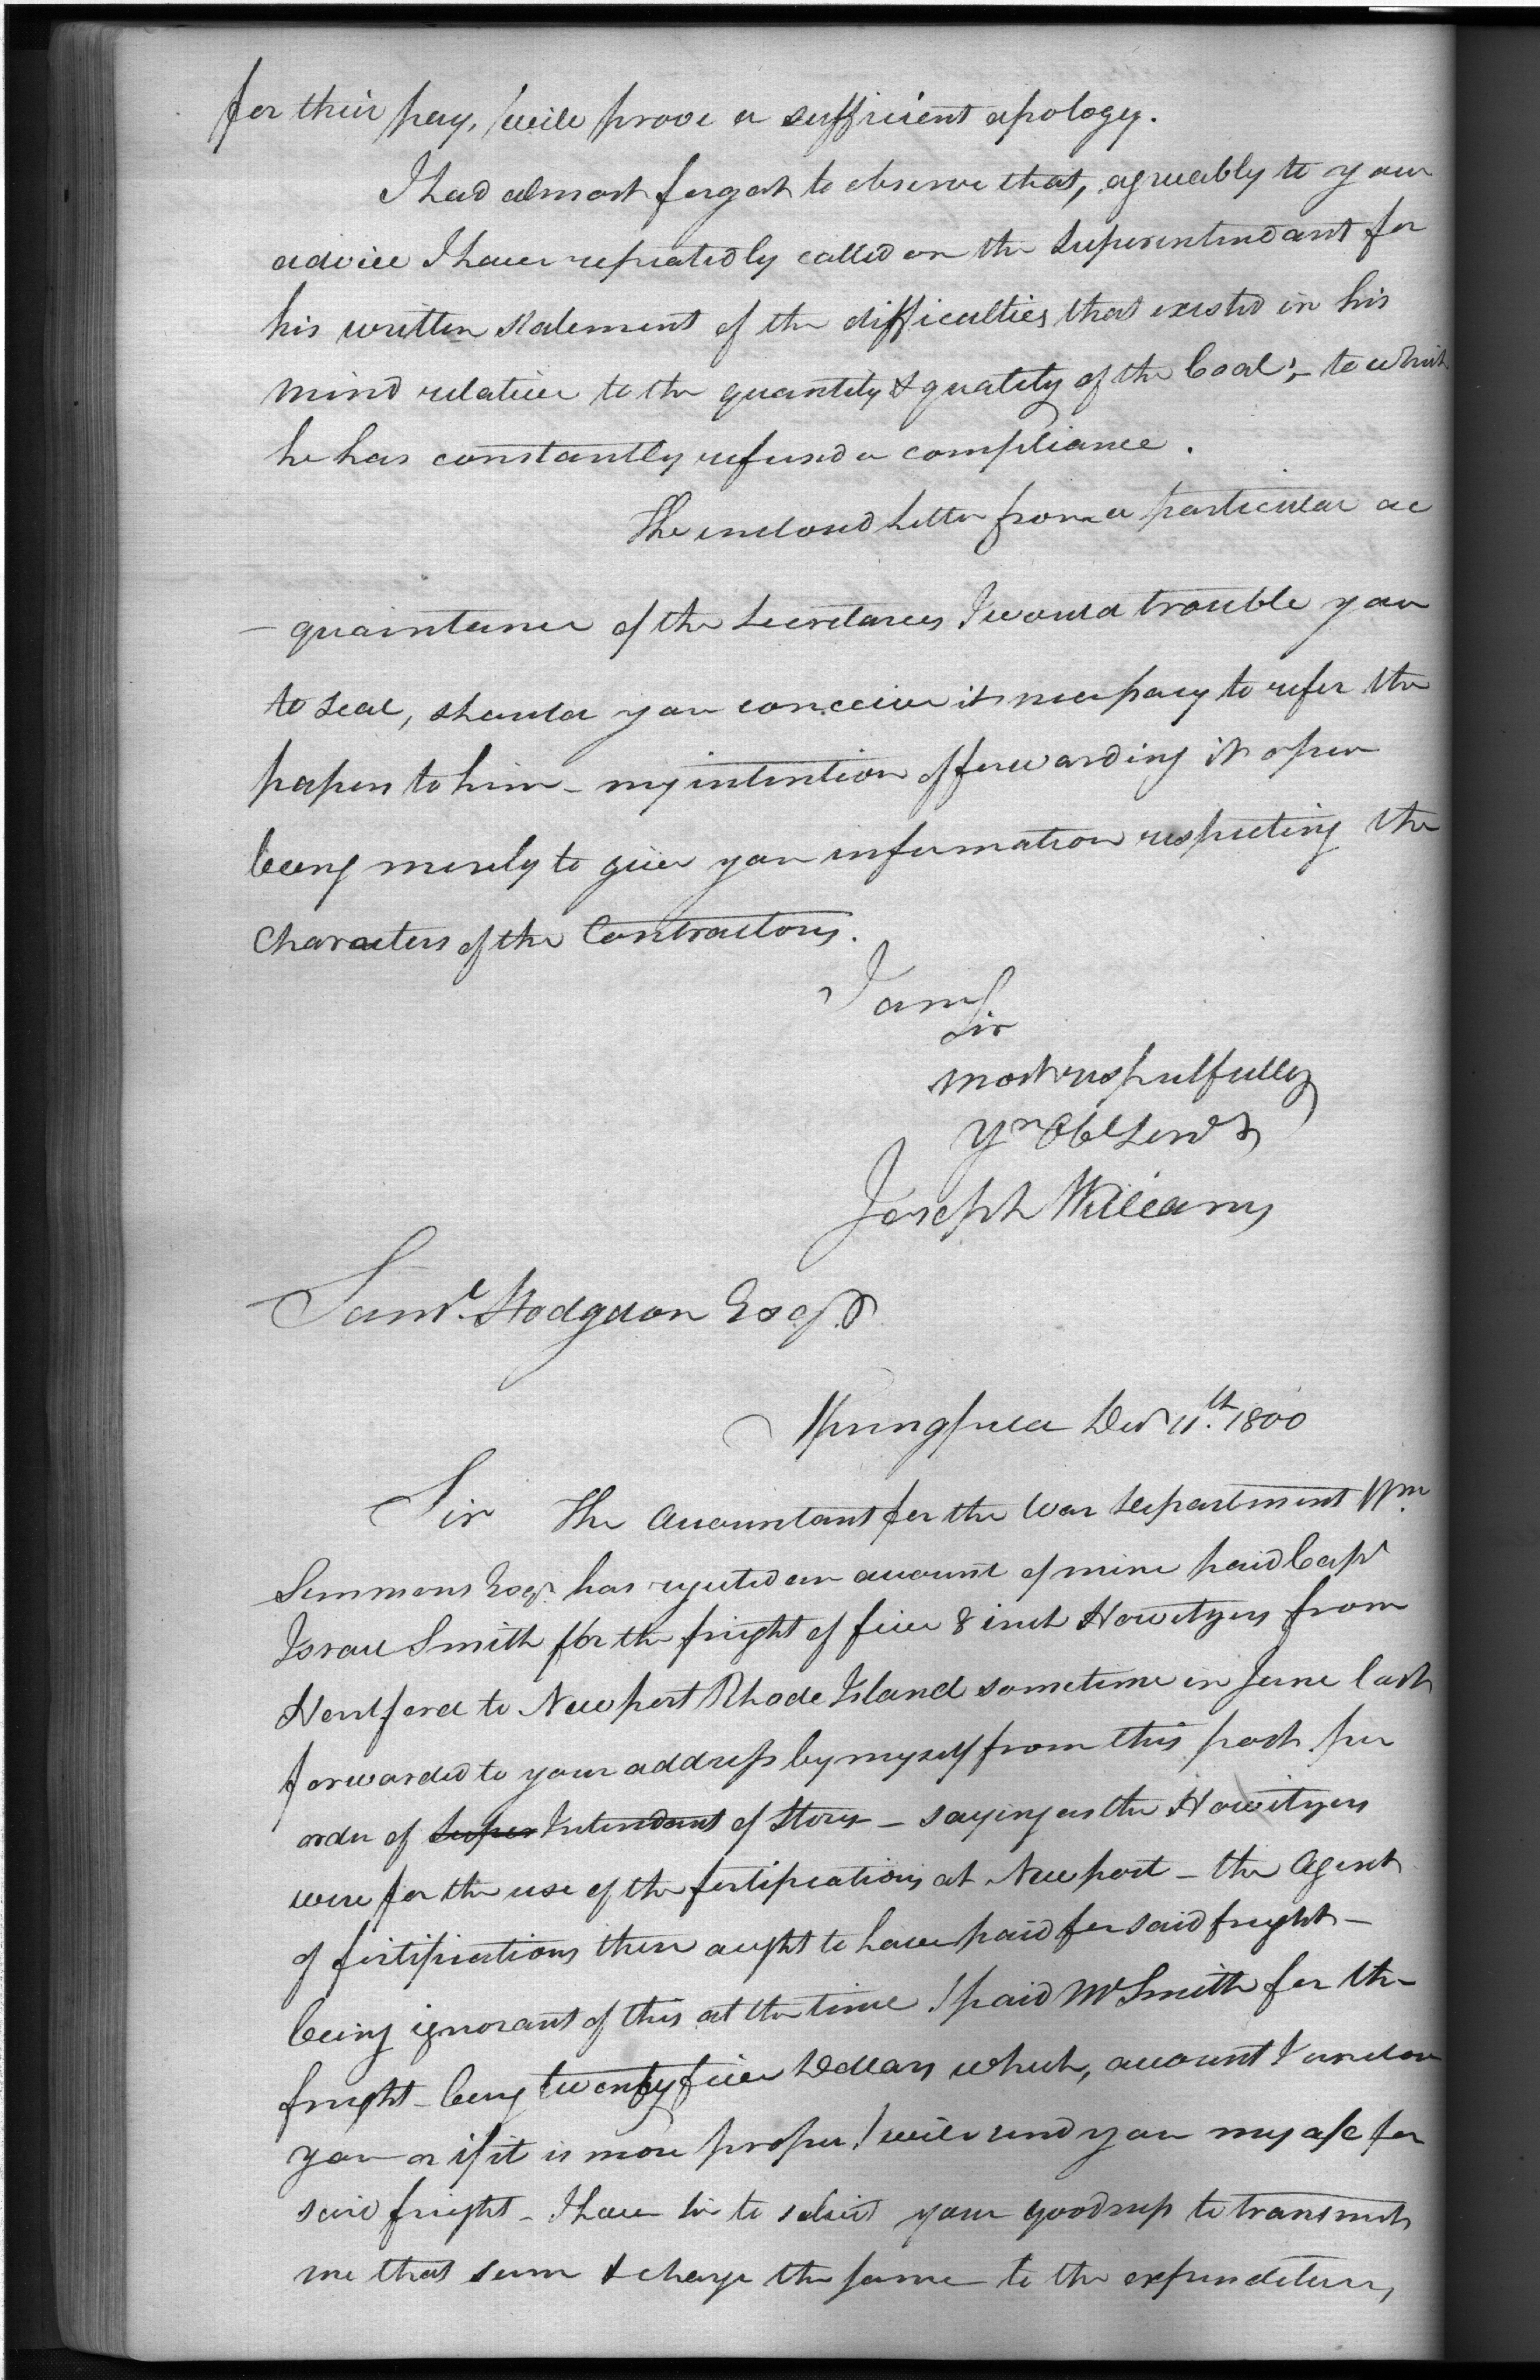 for their pay, will prove a sufficient apology.
I had almost forgot to observe that, agreeably to your
advice I have repeatedly called on the Superintendant for
his written statement of the difficulties that existed in his
mind relative to the quantity & quality of the Coal; - to which
he has constantly refused a compliance.
The inclosed Letter from a particular ac
- quaintance of the Secretarys I would trouble you
to seal, should you conceive it necessary to refer the
papers to him - my intention of forwarding it open
being merely to give you information respecting the
Characters of the Contractors.
I am
Sir
most respectfully
Yr Obt Servt
Joseph Williams
Saml. Hodgdon Esqr
Springfield Decr 11.th 1800
Sir The Accountant for the War Department Wm.
Simmons Esqr. has rejected an account of mine paid Capt
Israel Smith for the freight of five 8 inch Howitzers from
Hertford to Newport Rhode Island sometime in June last
forwarded to your address by myself from this post per
order of Super Intendant of Stores - saying as the Howitzers
were for the use of the fortifications at Newport - the Agent
of fortifications there aught to have paid for said freight -
being ignorant of this at the time I paid Mr Smith for the
freight - being twenty five Dollars which, account I inclose
you or if it is more proper I will send you my a/c for
said freight - I have Sir to solicit your goodness to transmit
me that sum & charge the same to the expenditures,